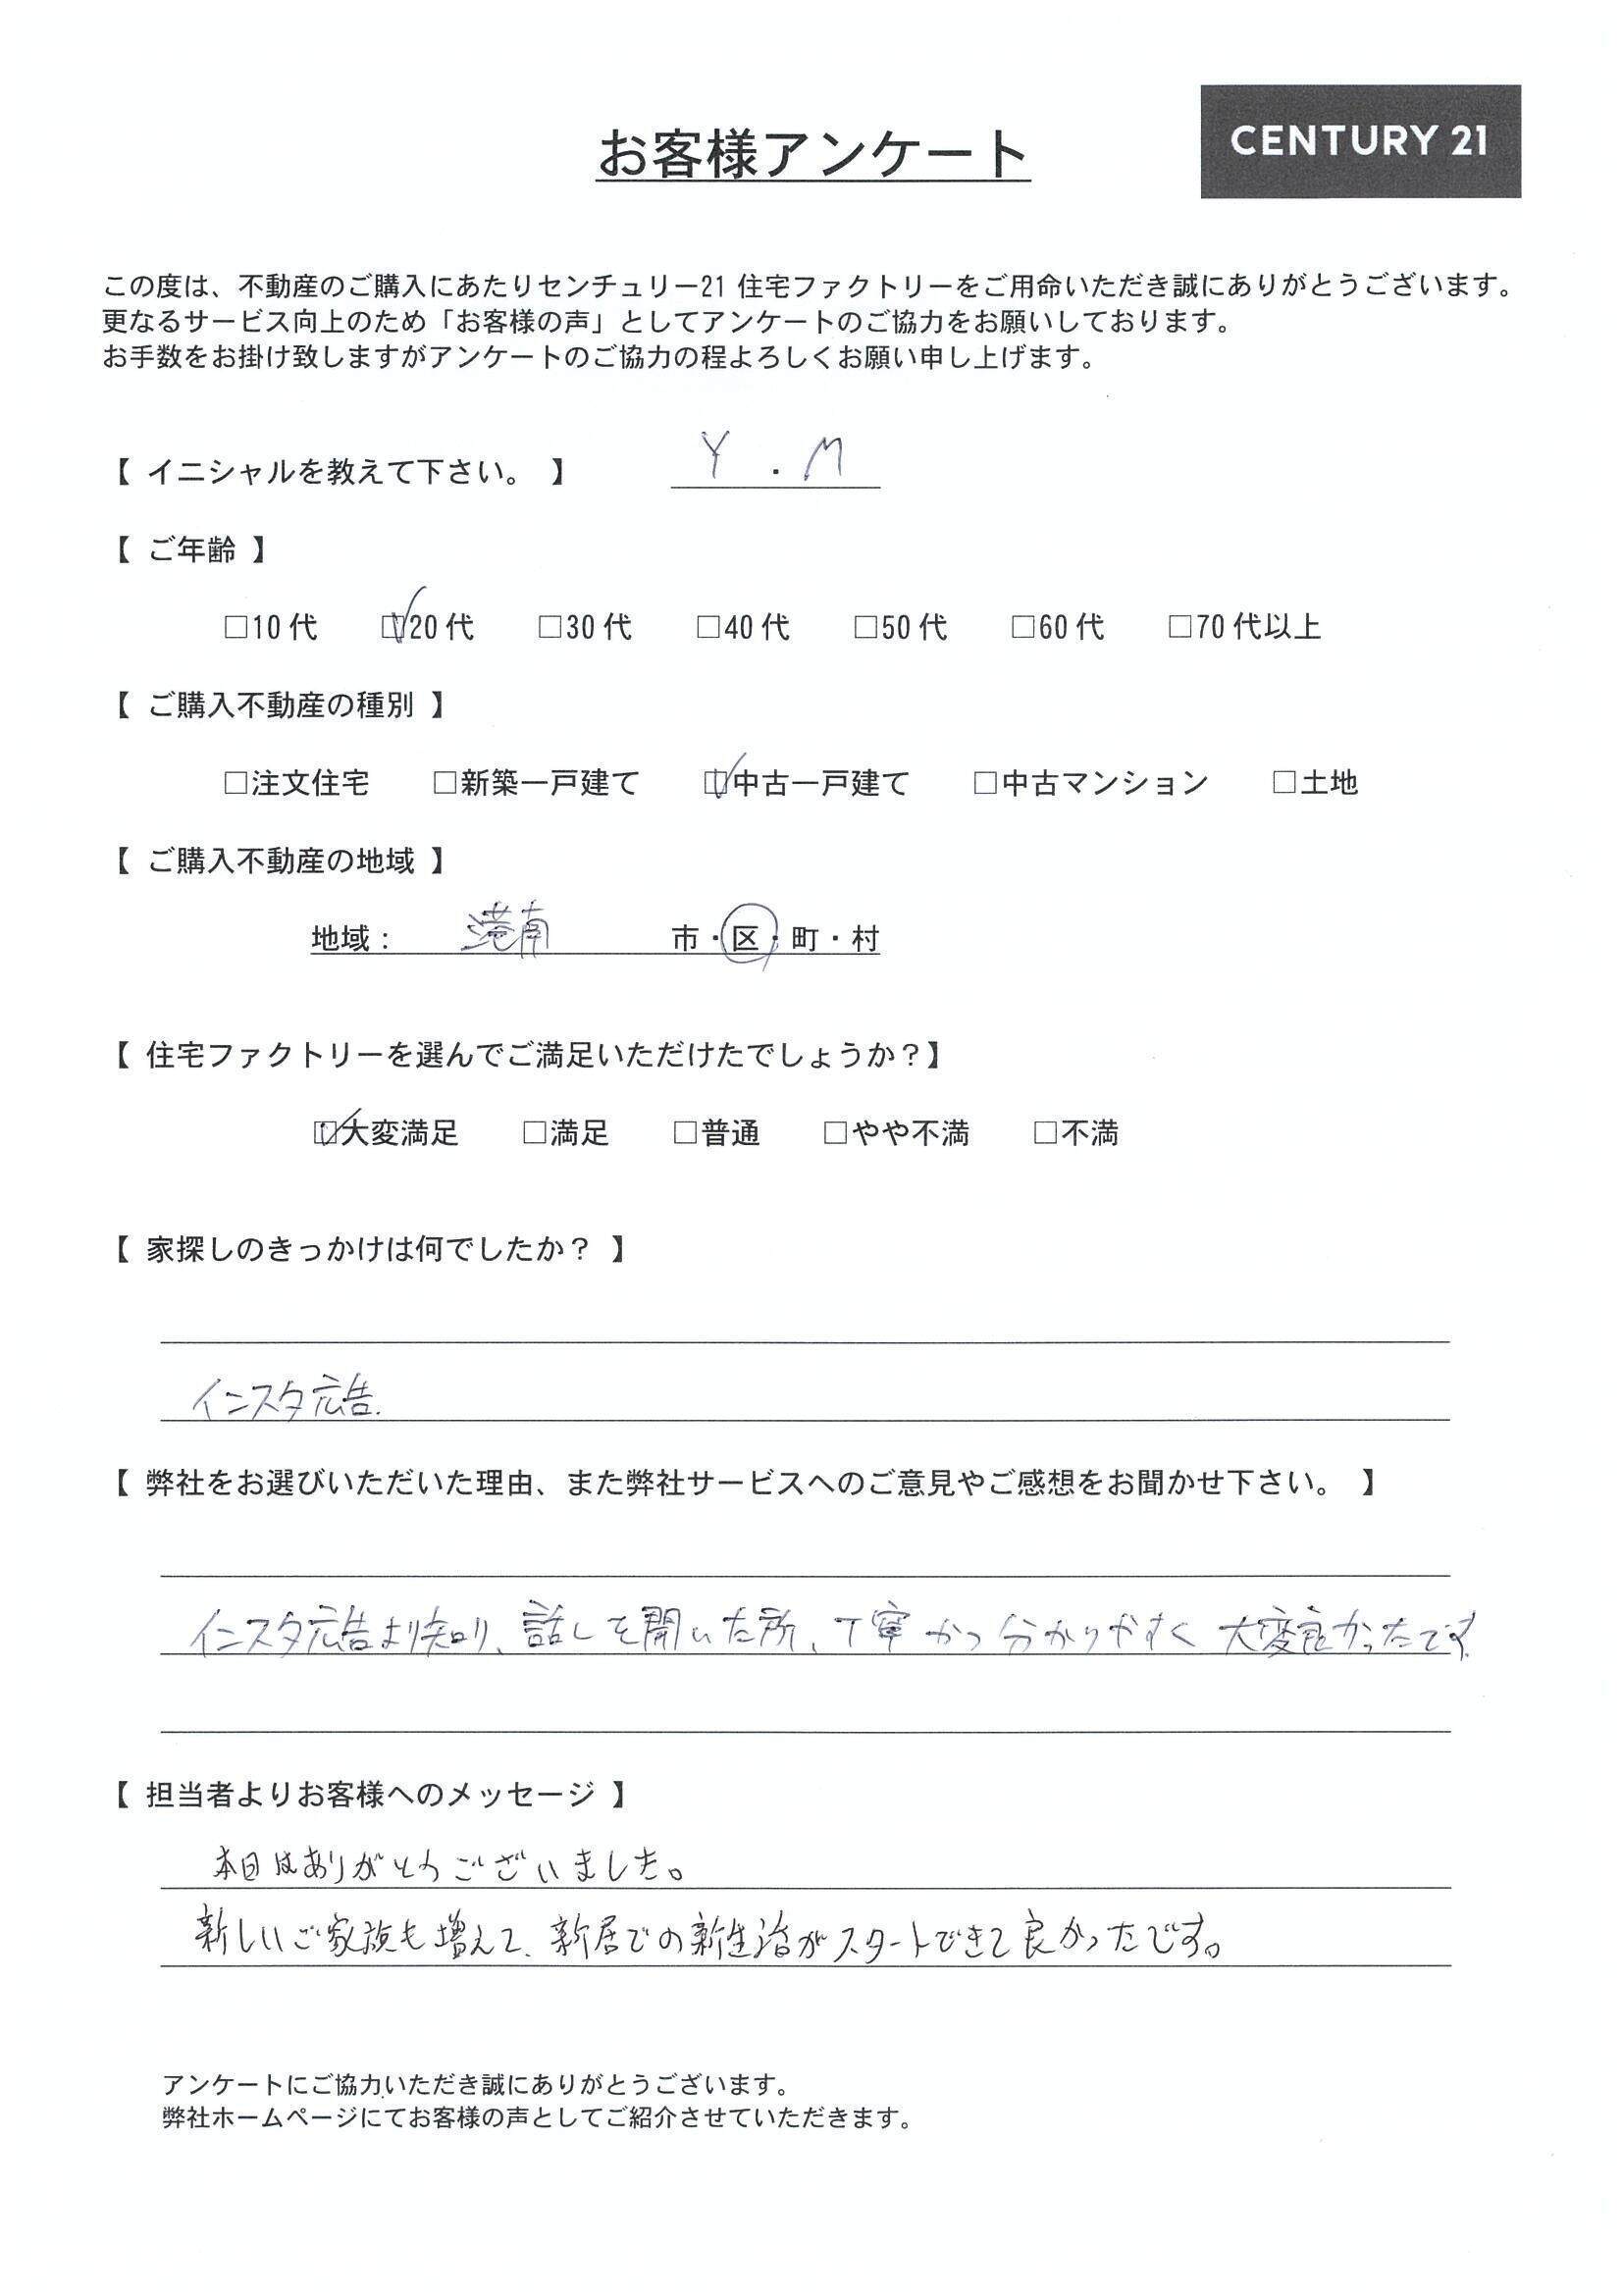 お客様アンケート
CENTURY 21
この度は、不動産のご購入にあたりセンチュリー21 住宅ファクトリーをご用命いただき誠にありがとうございます。
更なるサービス向上のため「お客様の声」としてアンケートのご協力をお願いしております。
お手数をお掛け致しますがアンケートのご協力の程よろしくお願い申し上げます。
【 イニシャルを教えて下さい。 】 Y ・ M
【 ご年齢 】
□10代 ☑20代 □30代 □40代 □50代 □60代 □70代以上
【 ご購入不動産の種別 】
□注文住宅 □新築一戸建て ☑中古一戸建て □中古マンション □土地
【 ご購入不動産の地域 】
地域： 港南 市・区・町・村
【 住宅ファクトリーを選んでご満足いただけたでしょうか？】
☑大変満足 □満足 □普通 □やや不満 □不満
【 家探しのきっかけは何でしたか？ 】
インスタ広告.
【 弊社をお選びいただいた理由、また弊社サービスへのご意見やご感想をお聞かせ下さい。 】
インスタ広告より知り、話しを聞いた所、丁寧かつ分かりやすく大変良かったです.
【 担当者よりお客様へのメッセージ 】
本日はありがとうございました。
新しいご家族も増えて、新居での新生活がスタートできて良かったです。
アンケートにご協力いただき誠にありがとうございます。
弊社ホームページにてお客様の声としてご紹介させていただきます。